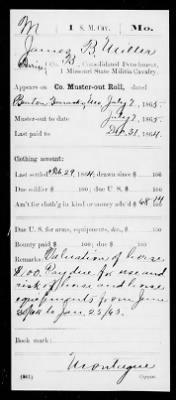 M 1 S. M. Cav. Mo.
James B. Miller
Co. B, Consolidated Detachment,
1 Missouri State Militia Cavalry.
Appears on Co. Muster-out Roll, dated
Benton Barracks, Mo, July 7, 1865.
Muster-out to date July 7, 1865.
Last paid to Dec. 31, 1864.
Clothing account:
Last settled Feb 29, 1864; drawn since $ 100
Due soldier $ 100; due U. S. $ 100
Am't for cloth'g in kind or money adv'd $ 68 100
Due U. S. for arms, equipments, &c., $ 100
Bounty paid $ 100; due $ 100
Remarks: Valuation of horse
Pay due for use and
risk of horse and horse
equipments from June
to Jan. 25/65.
Book mark:
Montague
(861) Copyist.